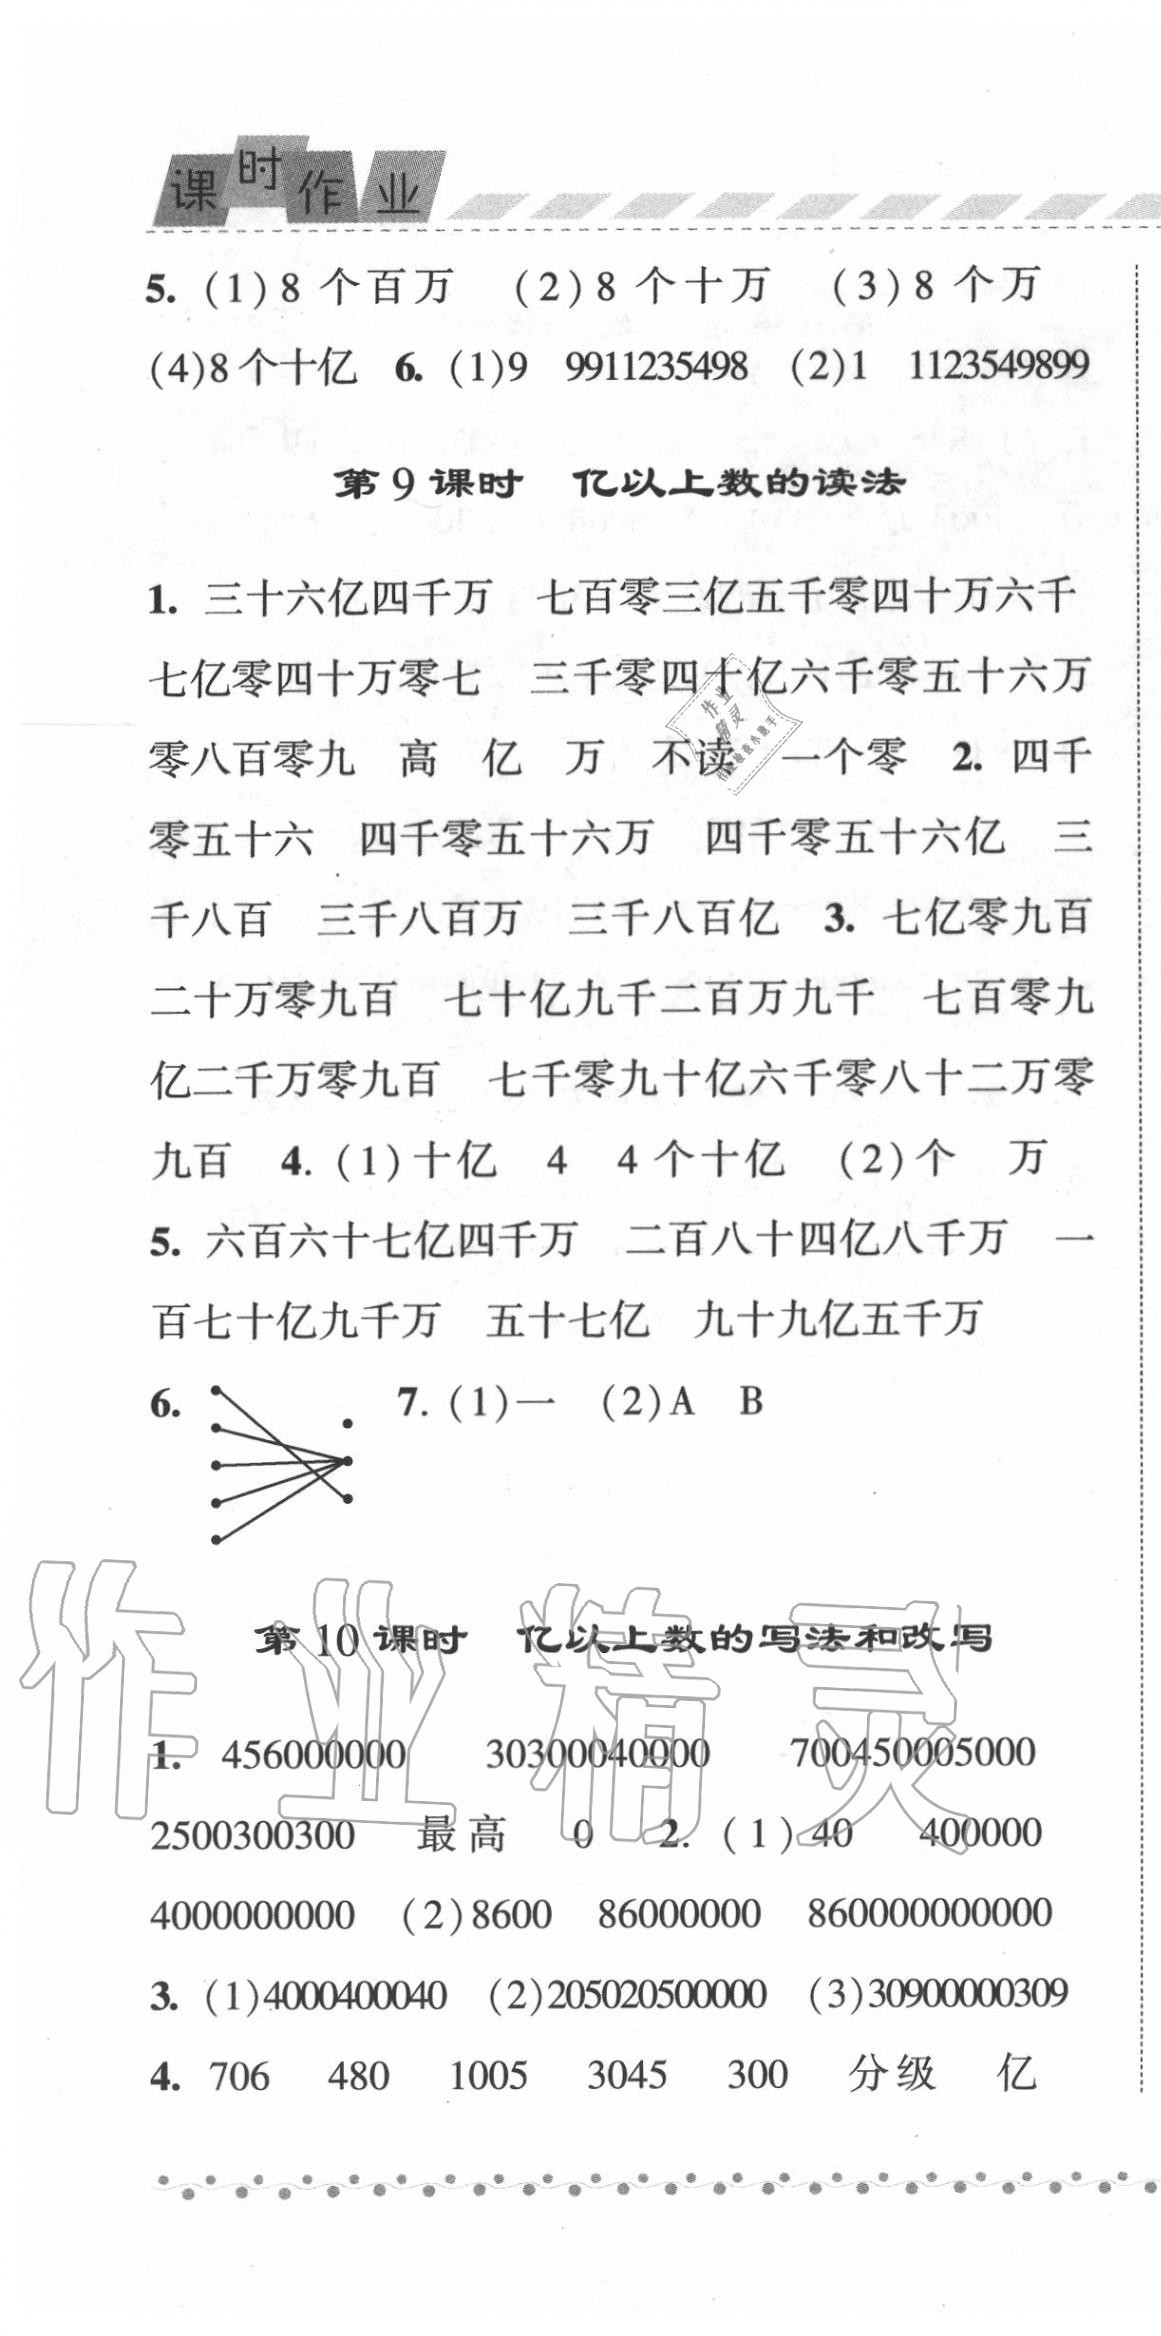 课时作业
5. (1)8 个百万 (2)8 个十万 (3)8 个万
(4)8个十亿 6. (1)9 9911235498 (2)1 1123549899
第9课时 亿以上数的读法
1. 三十六亿四千万 七百零三亿五千零四十万六千
七亿零四十万零七 三千零四十亿六千零五十六万
零八百零九 高 亿 万 不读 一个零 2. 四千
零五十六 四千零五十六万 四千零五十六亿 三
千八百 三千八百万 三千八百亿 3. 七亿零九百
二十万零九百 七十亿九千二百万九千 七百零九
亿二千万零九百 七千零九十亿六千零八十二万零
九百 4. (1)十亿 4 4个十亿 (2)个 万
5. 六百六十七亿四千万 二百八十四亿八千万 一
百七十亿九千万 五十七亿 九十九亿五千万
6. 7. (1)一 (2)A B
第10课时 亿以上数的写法和改写
1. 456000000 30300040000 700450005000
2500300300 最高 0 2. (1)40 400000
4000000000 (2)8600 86000000 860000000000
3. (1)4000400040 (2)205020500000 (3)30900000309
4. 706 480 1005 3045 300 分级 亿
作业精灵
作业
精灵